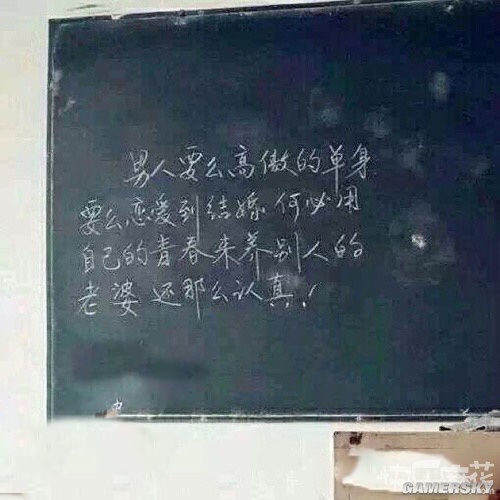 男人要么高傲的单身
要么恋爱到结婚何必用
自己的青春来养别人的
老婆还那么认真！
GAMERSKY